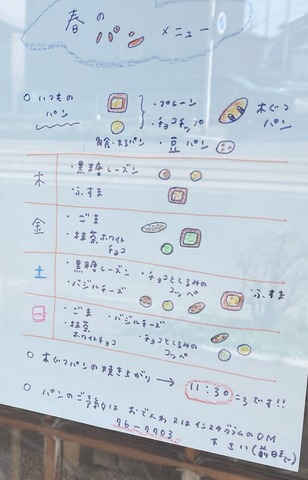 春の メニュー
○ いつもの パン
・プレーン
・チョコチップ
木ぐつ パン
角食・まるパン ・豆パン
木
・黒糖レーズン
・ふすま
金
・ごま
・抹茶ホワイト チョコ
土
・黒糖レーズン ・チョコとくるみの コッペ ・ふすま
・バジルチーズ
日
・ごま ・バジルチーズ
・抹茶 ホワイトチョコ ・チョコとくるみの コッペ
○ 木ぐつパンの焼き上がり → 11:30ころです!!
○ パンのご予約は おでんわ 又は インスタグラムのDM
76-7703 下さい(前日まで)